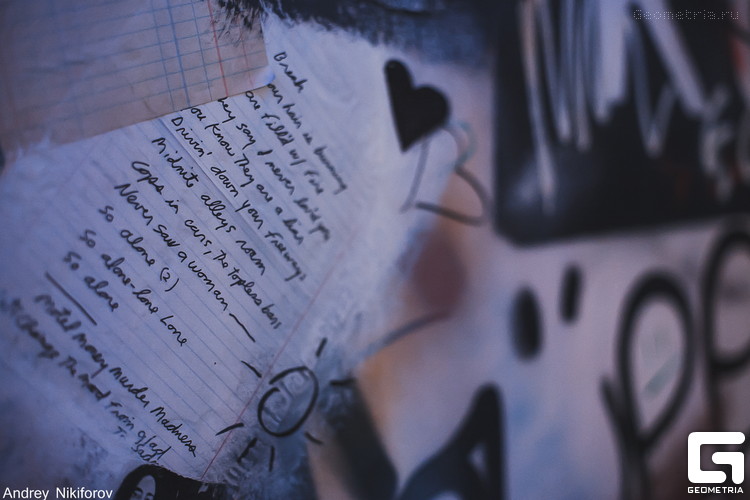 Geometria.ru
Break
hair is burning
filled w/ Fire
hey say I never loved you
ou Know They are a liar
Drivin' down your Freeways
Midnite alleys roam
Cops in cars, The topless bars
Never saw a woman —
so alone (2)
so alone-lone Lone
so alone
Motel Money Murder Madness
Change The Mood From glad
To Sad
Andrey Nikiforov
GEOMETRIA